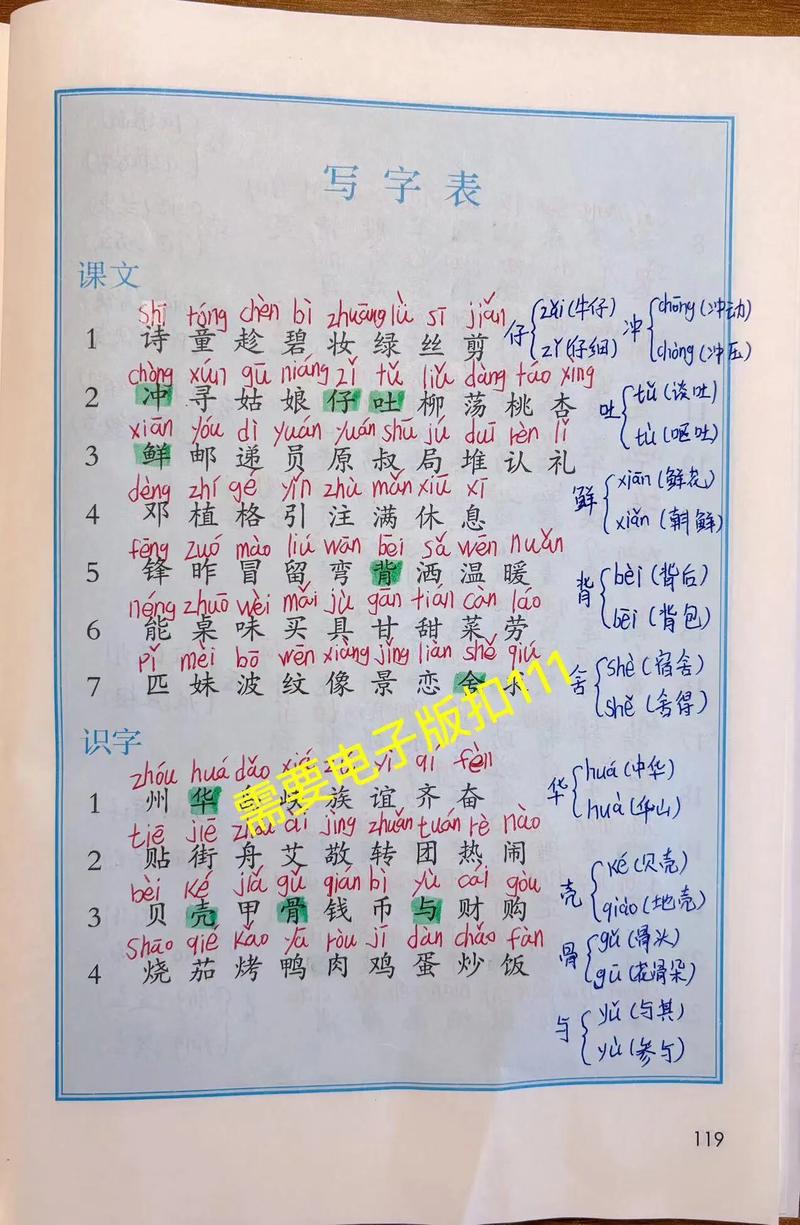 写字表
课文
shī tóng chèn bì zhuāng lǜ sī jiǎn
1 诗 童 趁 碧 妆 绿 丝 剪
chòng xún gū niáng zǐ tǔ liǔ dàng táo xìng
2 冲 寻 姑 娘 仔 吐 柳 荡 桃 杏
xiān yóu dì yuán yuán shū jú duī rèn lǐ
3 鲜 邮 递 员 原 叔 局 堆 认 礼
dèng zhí gé yǐn zhù mǎn xiū xī
4 邓 植 格 引 注 满 休 息
fēng zuó mào liú wān bēi sǎ wēn nuǎn
5 锋 昨 冒 留 弯 背 洒 温 暖
néng zhuō wèi mǎi jù gān tián cài láo
6 能 桌 味 买 具 甘 甜 菜 劳
pǐ mèi bō wén xiàng jǐng liàn shě qiú
7 匹 妹 波 纹 像 景 恋 舍
识字
zhóu huá dǎo
1 州 华 族 谊 齐 奋
tiē jiē zhōu ài jìng zhuǎn tuán rè nào
2 贴 街 舟 艾 敬 转 团 热 闹
bèi ké jiǎ gǔ qián bì yù cái gòu
3 贝 壳 甲 骨 钱 币 与 财 购
shāo qié kǎo yā ròu jī dàn chǎo fàn
4 烧 茄 烤 鸭 肉 鸡 蛋 炒 饭
仔 zǎi(牛仔)
zǐ(仔细)
冲 chōng(冲动)
chòng(冲压)
吐 tǔ(谈吐)
tù(呕吐)
鲜 xiān(鲜花)
xiǎn(朝鲜)
背 bèi(背后)
bēi(背包)
舍 shè(宿舍)
shě(舍得)
华 huá(中华)
huà(华山)
壳 ké(贝壳)
qiào(地壳)
骨 gǔ(骨头)
gū(花骨朵)
与 yǔ(与其)
yù(参与)
需要电子版扣111
119